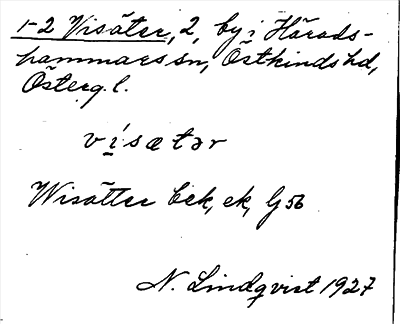 1-2 Visäter, 2, by i Härads-
hammars sn, Östkinds hd,
Österg. l.
vísætər
Wisätter bek, ek, G 56
N. Lindqvist 1927